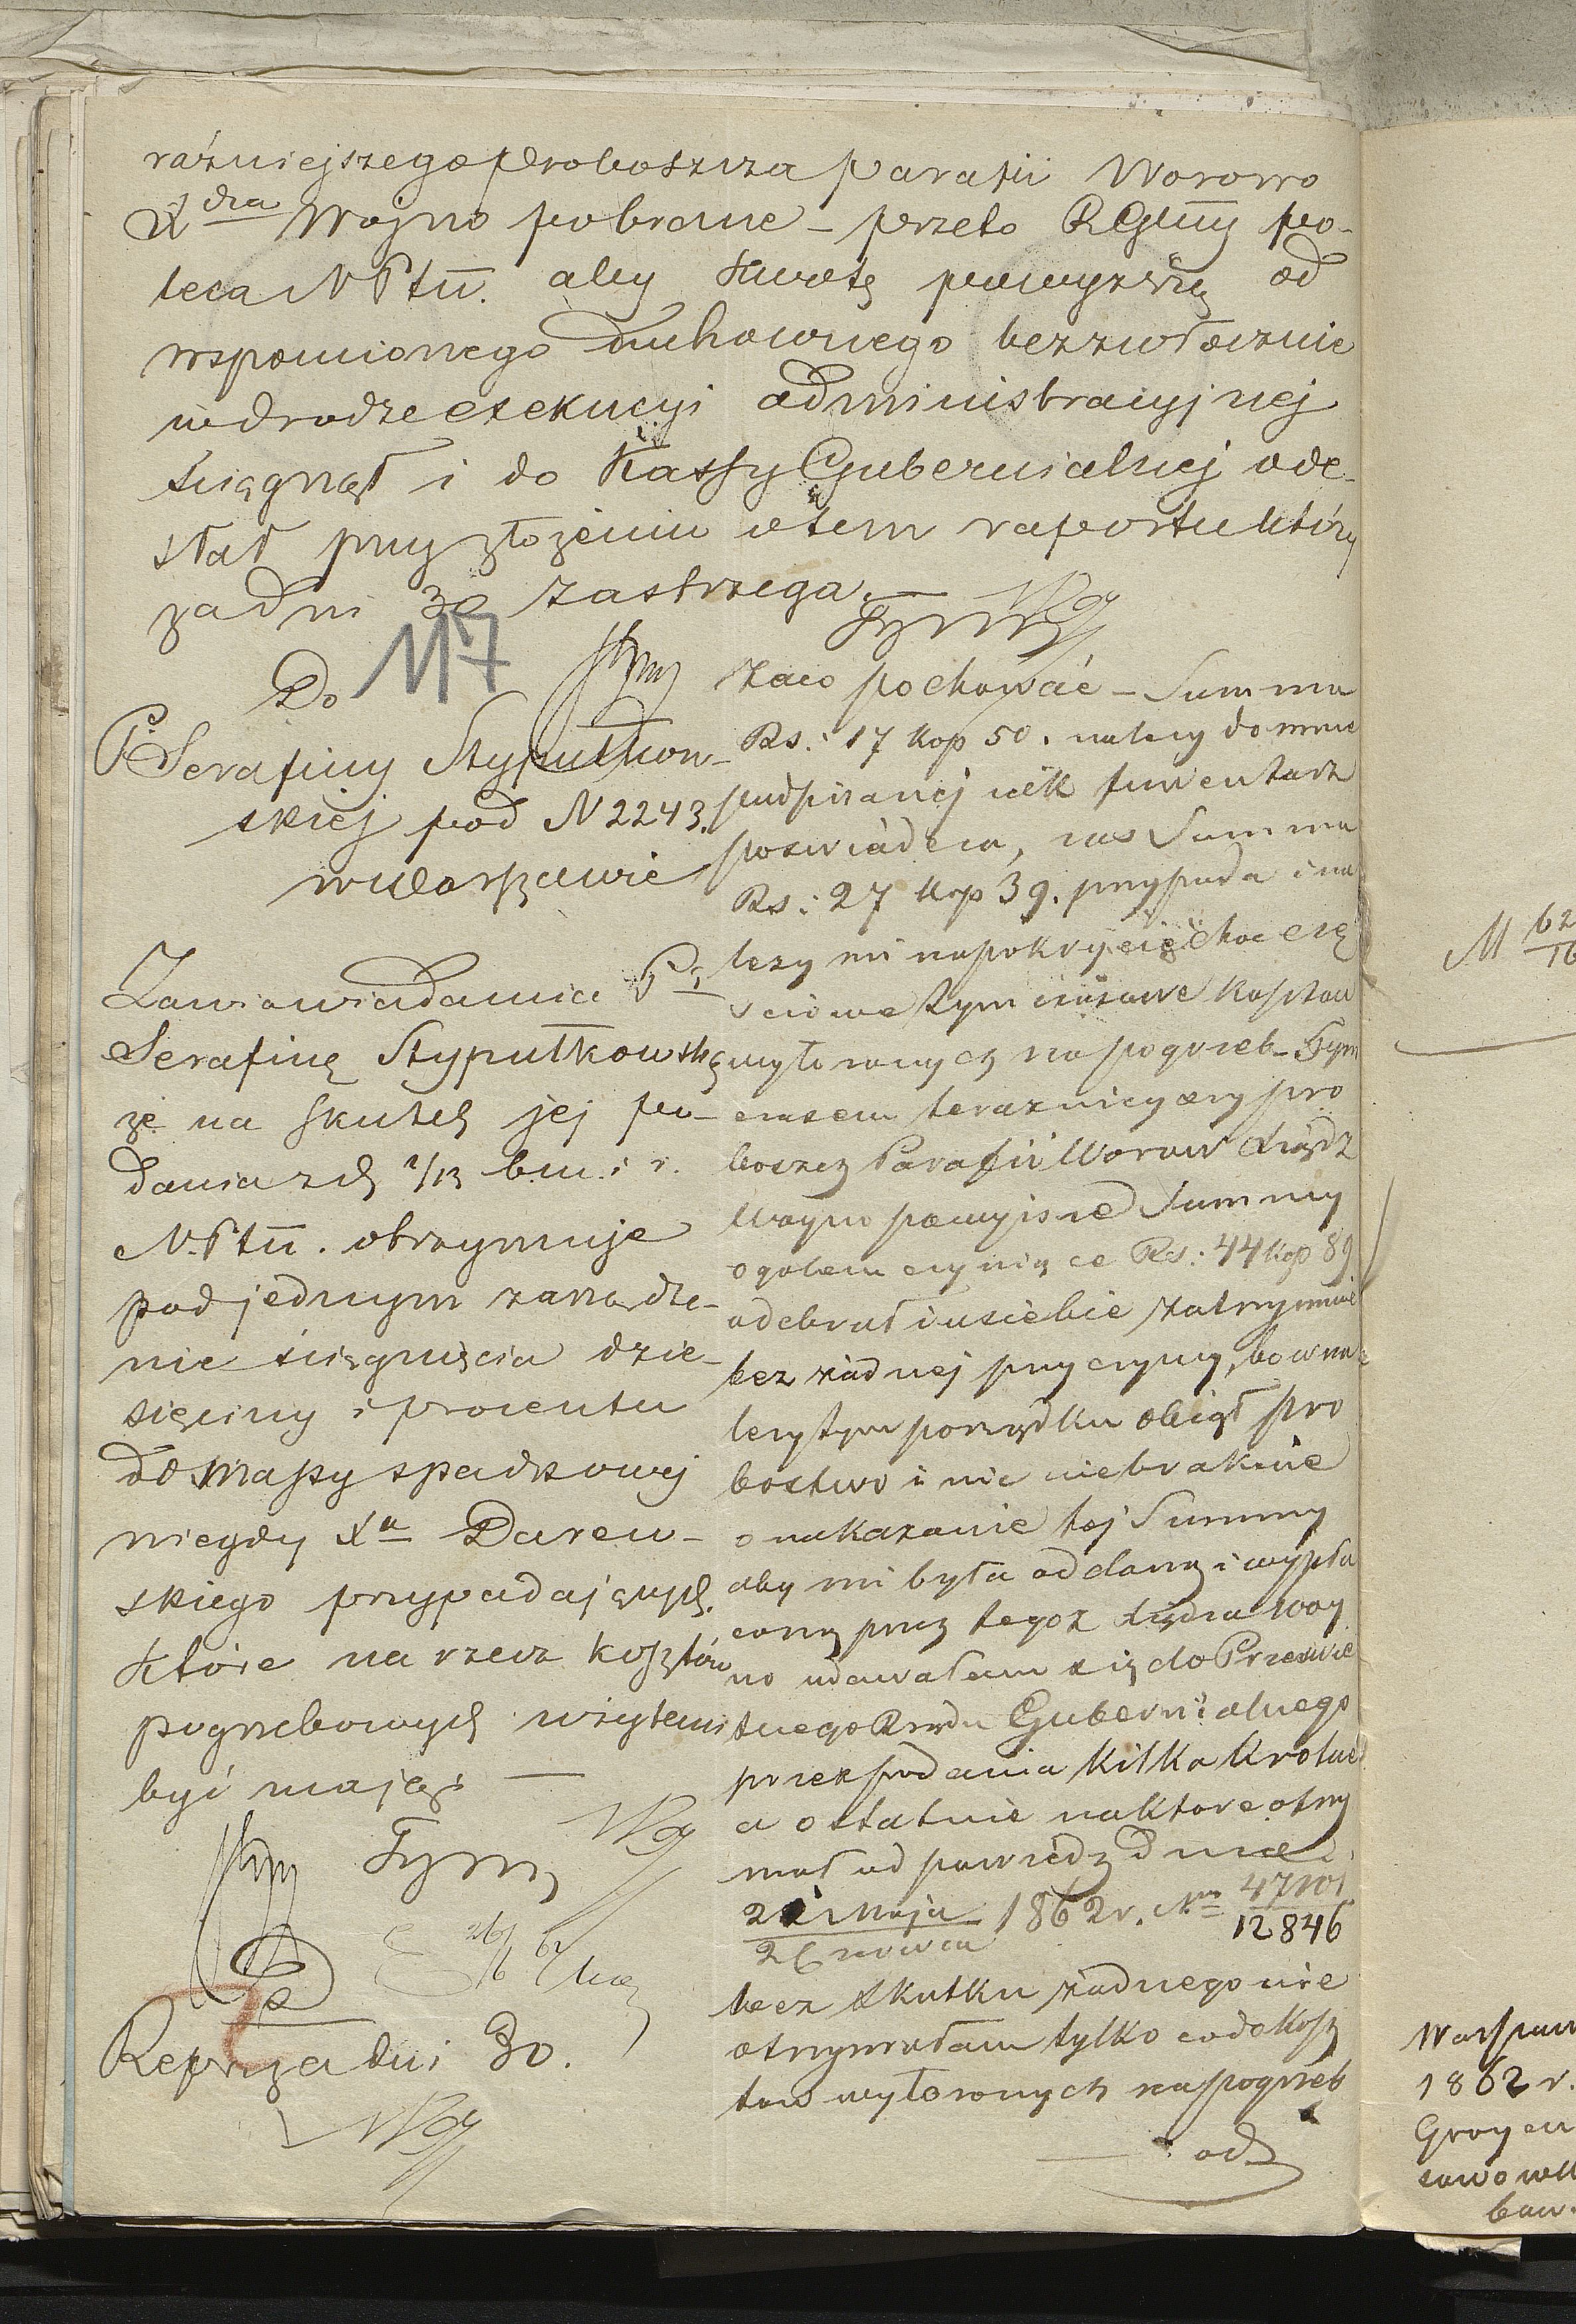 raźniejszego Proboszcza Parafii Worowo
Xdza Wojno pobrane – przeto RGlny po-
leca NPtu. aby kwotę powyższą od
wspomionego Duchownego bezzwłocznie
w drodze exekucyi administracyjnej
ściągnął i do Kassy Gubernialnej ode-
słał przy złożeniu o tem raportu który
za dni 30 zastrzega. –
117
Do
P. Serafiny Stypułkow-
skiej pod N 2243.
w Warszawie
Zawiawiadamia Pią
Serafinę Stypułkowską
że na skutek jej po-
dania z d. 1/13 b.m. i r.
N.Ptu. otrzymuje
pod jednym zarządze-
nie ściągnięcia dzie-
sięciny i procentu
do massy spadkowej
niegdy Xa Darew-
skiego przypadających.
które na rzecz kosztów
pogrzebowych użytemi
być mają. –
Tym
26/6 62
Repr. za dni 30.
Tym
Zaco pochować – Summa
Rs: 17 kop 50. należy do mnie
podpisanej jak inwentarz
poswiadcza, zas Summa
Rs: 27 kop 39. przypada i na
lezy mi na pokrycie choc czę
sciowe tym czasowe kosztow
wyłozonych na pogrzeb – Tym
czasem terazniejszy pro
boszcz Parafii Worow Xiądz
Woyno powyisze Summy
ogołem czyniące Rs: 44 kop 89
odebrał i u siebie zatrzymuie
bez żadnej przyczyny, bo w na
lezytym porządku obiął pro
bostwo i nic niebrakuie
o nakazanie tej Summy
aby mi była oddaną i wypła
coną przez tegoz Xiędza Woy
no udawałam się do Prześwie
tnego Rządu Gubernialnego
przez podania kilka krotne
a ostatnie na ktore otrzy
mał odpowiedz Dnia
21 Maja / 2 Czerwca 1862 r. Nro 47101/12846
bez skutku żadnego nie
otrzymałam tylko co do kosz
tow wyłozonych na pogrzeb
od
M 62/16
Warszaw
1862 r.